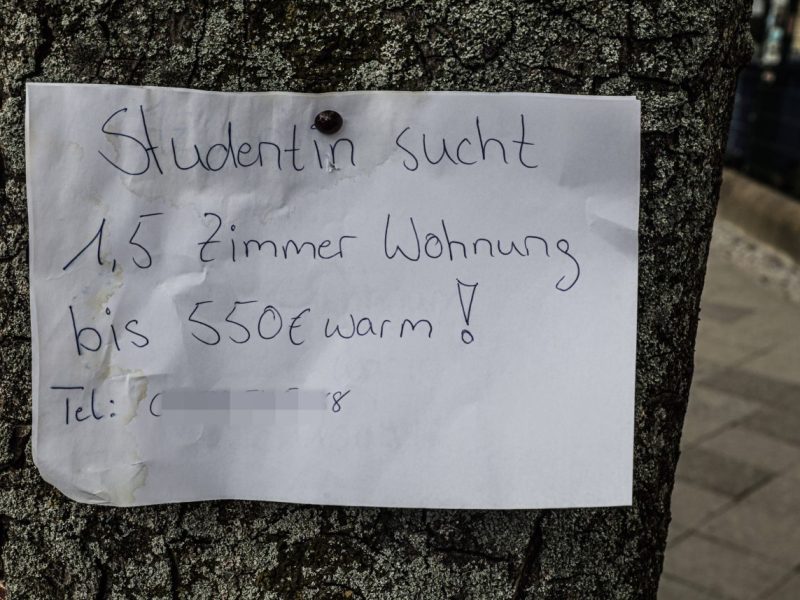 Studentin sucht
1,5 Zimmer Wohnung
bis 550€ warm!
Tel: